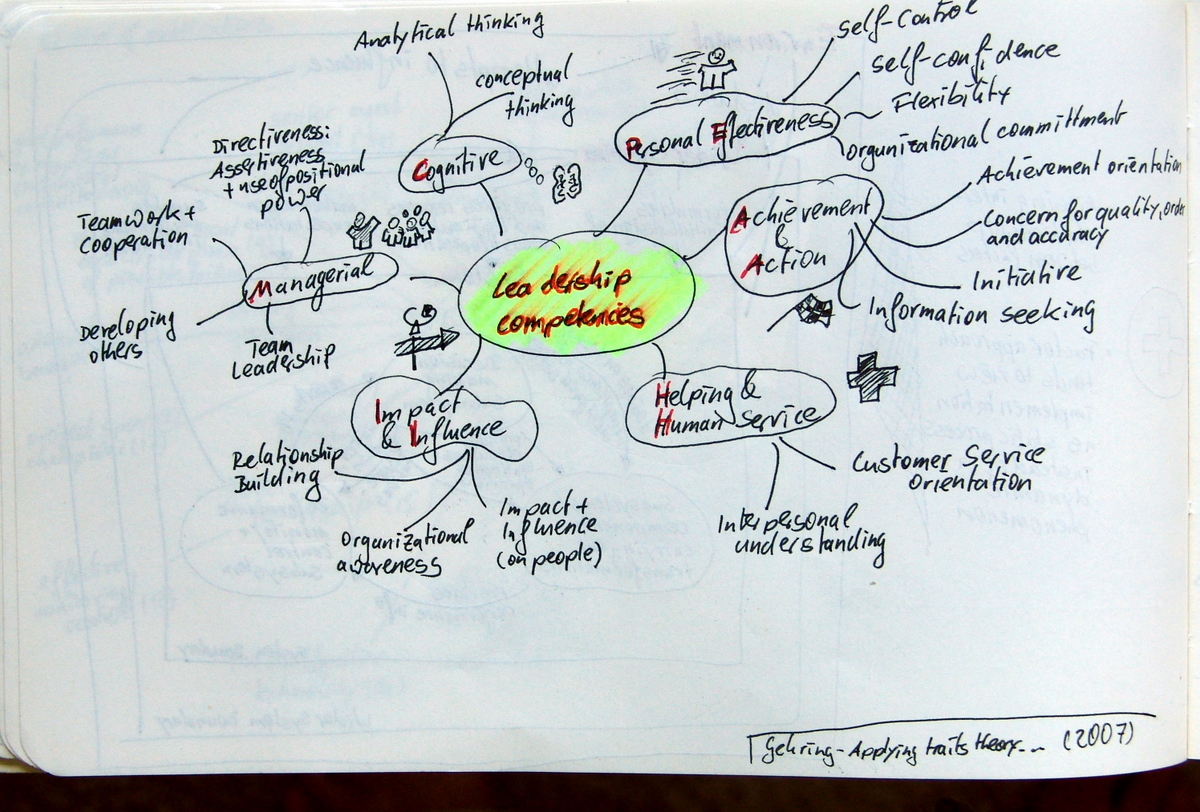 Analytical thinking
conceptual
thinking
Cognitive
Directiveness:
Assertiveness
+ use of positional
power
Teamwork +
Cooperation
Managerial
Developing
others
Team
Leadership
Leadership
competencies
Personal Effectiveness
self-control
self-confidence
Flexibility
Organizational committment
Achievement
&
Action
Achievement orientation
Concern for quality, order
and accuracy
Initiative
Information seeking
Impact
& Influence
Relationship
Building
Organizational
awareness
Impact +
Influence
(on people)
Helping &
Human Service
Customer Service
Orientation
Interpersonal
understanding
Gehring - Applying traits theory... (2007)